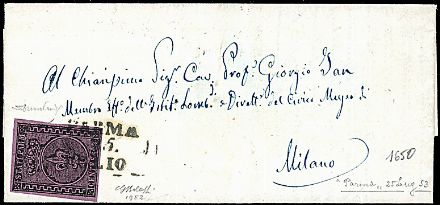 Al Chiarissimo Sigr. Cav. Profr. Giorgio Jan
Membro Eff. dell' Istit. Lomb. e Dirett. del Civico Museo di
PARMA
25.
LIO
Milano
1650
Parma 25 53
1982